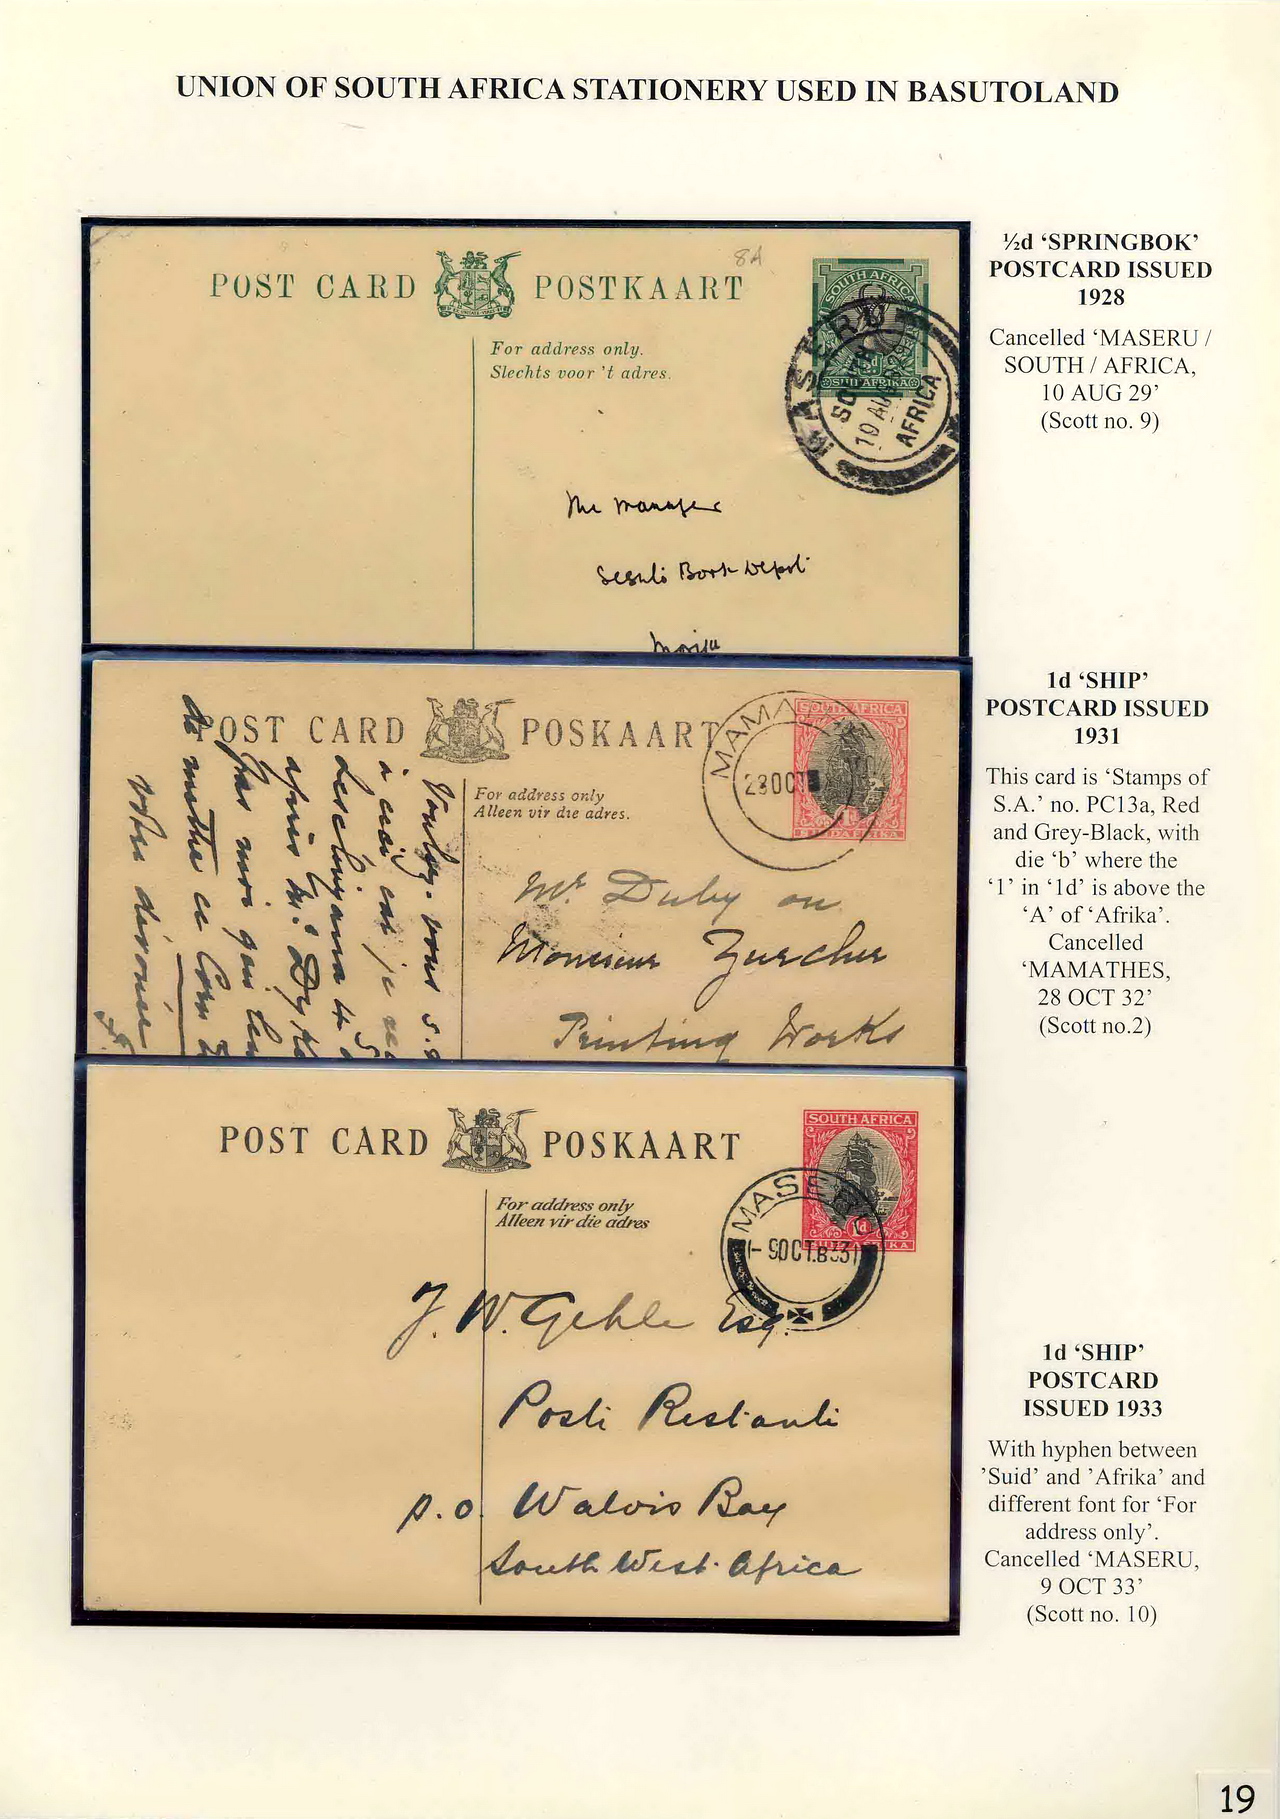 UNION OF SOUTH AFRICA STATIONERY USED IN BASUTOLAND
8A
POST CARD POSTKAART
For address only.
Slechts voor 't adres.
SOUTH AFRICA
½d
SUID AFRIKA
MASERU
SOUTH
10 AUG 29
AFRICA
The Manager
Sesuto Book Depot
Morija
½d ‘SPRINGBOK’
POSTCARD ISSUED
1928
Cancelled ‘MASERU /
SOUTH / AFRICA,
10 AUG 29’
(Scott no. 9)
POST CARD POSKAART
For address only
Alleen vir die adres.
SOUTH AFRICA
SUIDAFRIKA
MAMA
28 OCT
Mr. Duby on
Monsieur Zurcher
Printing Works
Voulez-vous s.
1d ‘SHIP’
POSTCARD ISSUED
1931
This card is ‘Stamps of
S.A.’ no. PC13a, Red
and Grey-Black, with
die ‘b’ where the
‘1’ in ‘1d’ is above the
‘A’ of ‘Afrika’.
Cancelled
‘MAMATHES,
28 OCT 32’
(Scott no.2)
POST CARD POSKAART
For address only
Alleen vir die adres
SOUTH AFRICA
1d
SUID-AFRIKA
MASERU
9 OCT.33
J. W. Gehle Esq.
Poste Restante
P.O. Walvis Bay
South West Africa
1d ‘SHIP’
POSTCARD
ISSUED 1933
With hyphen between
’Suid’ and ’Afrika’ and
different font for ‘For
address only’.
Cancelled ‘MASERU,
9 OCT 33’
(Scott no. 10)
19